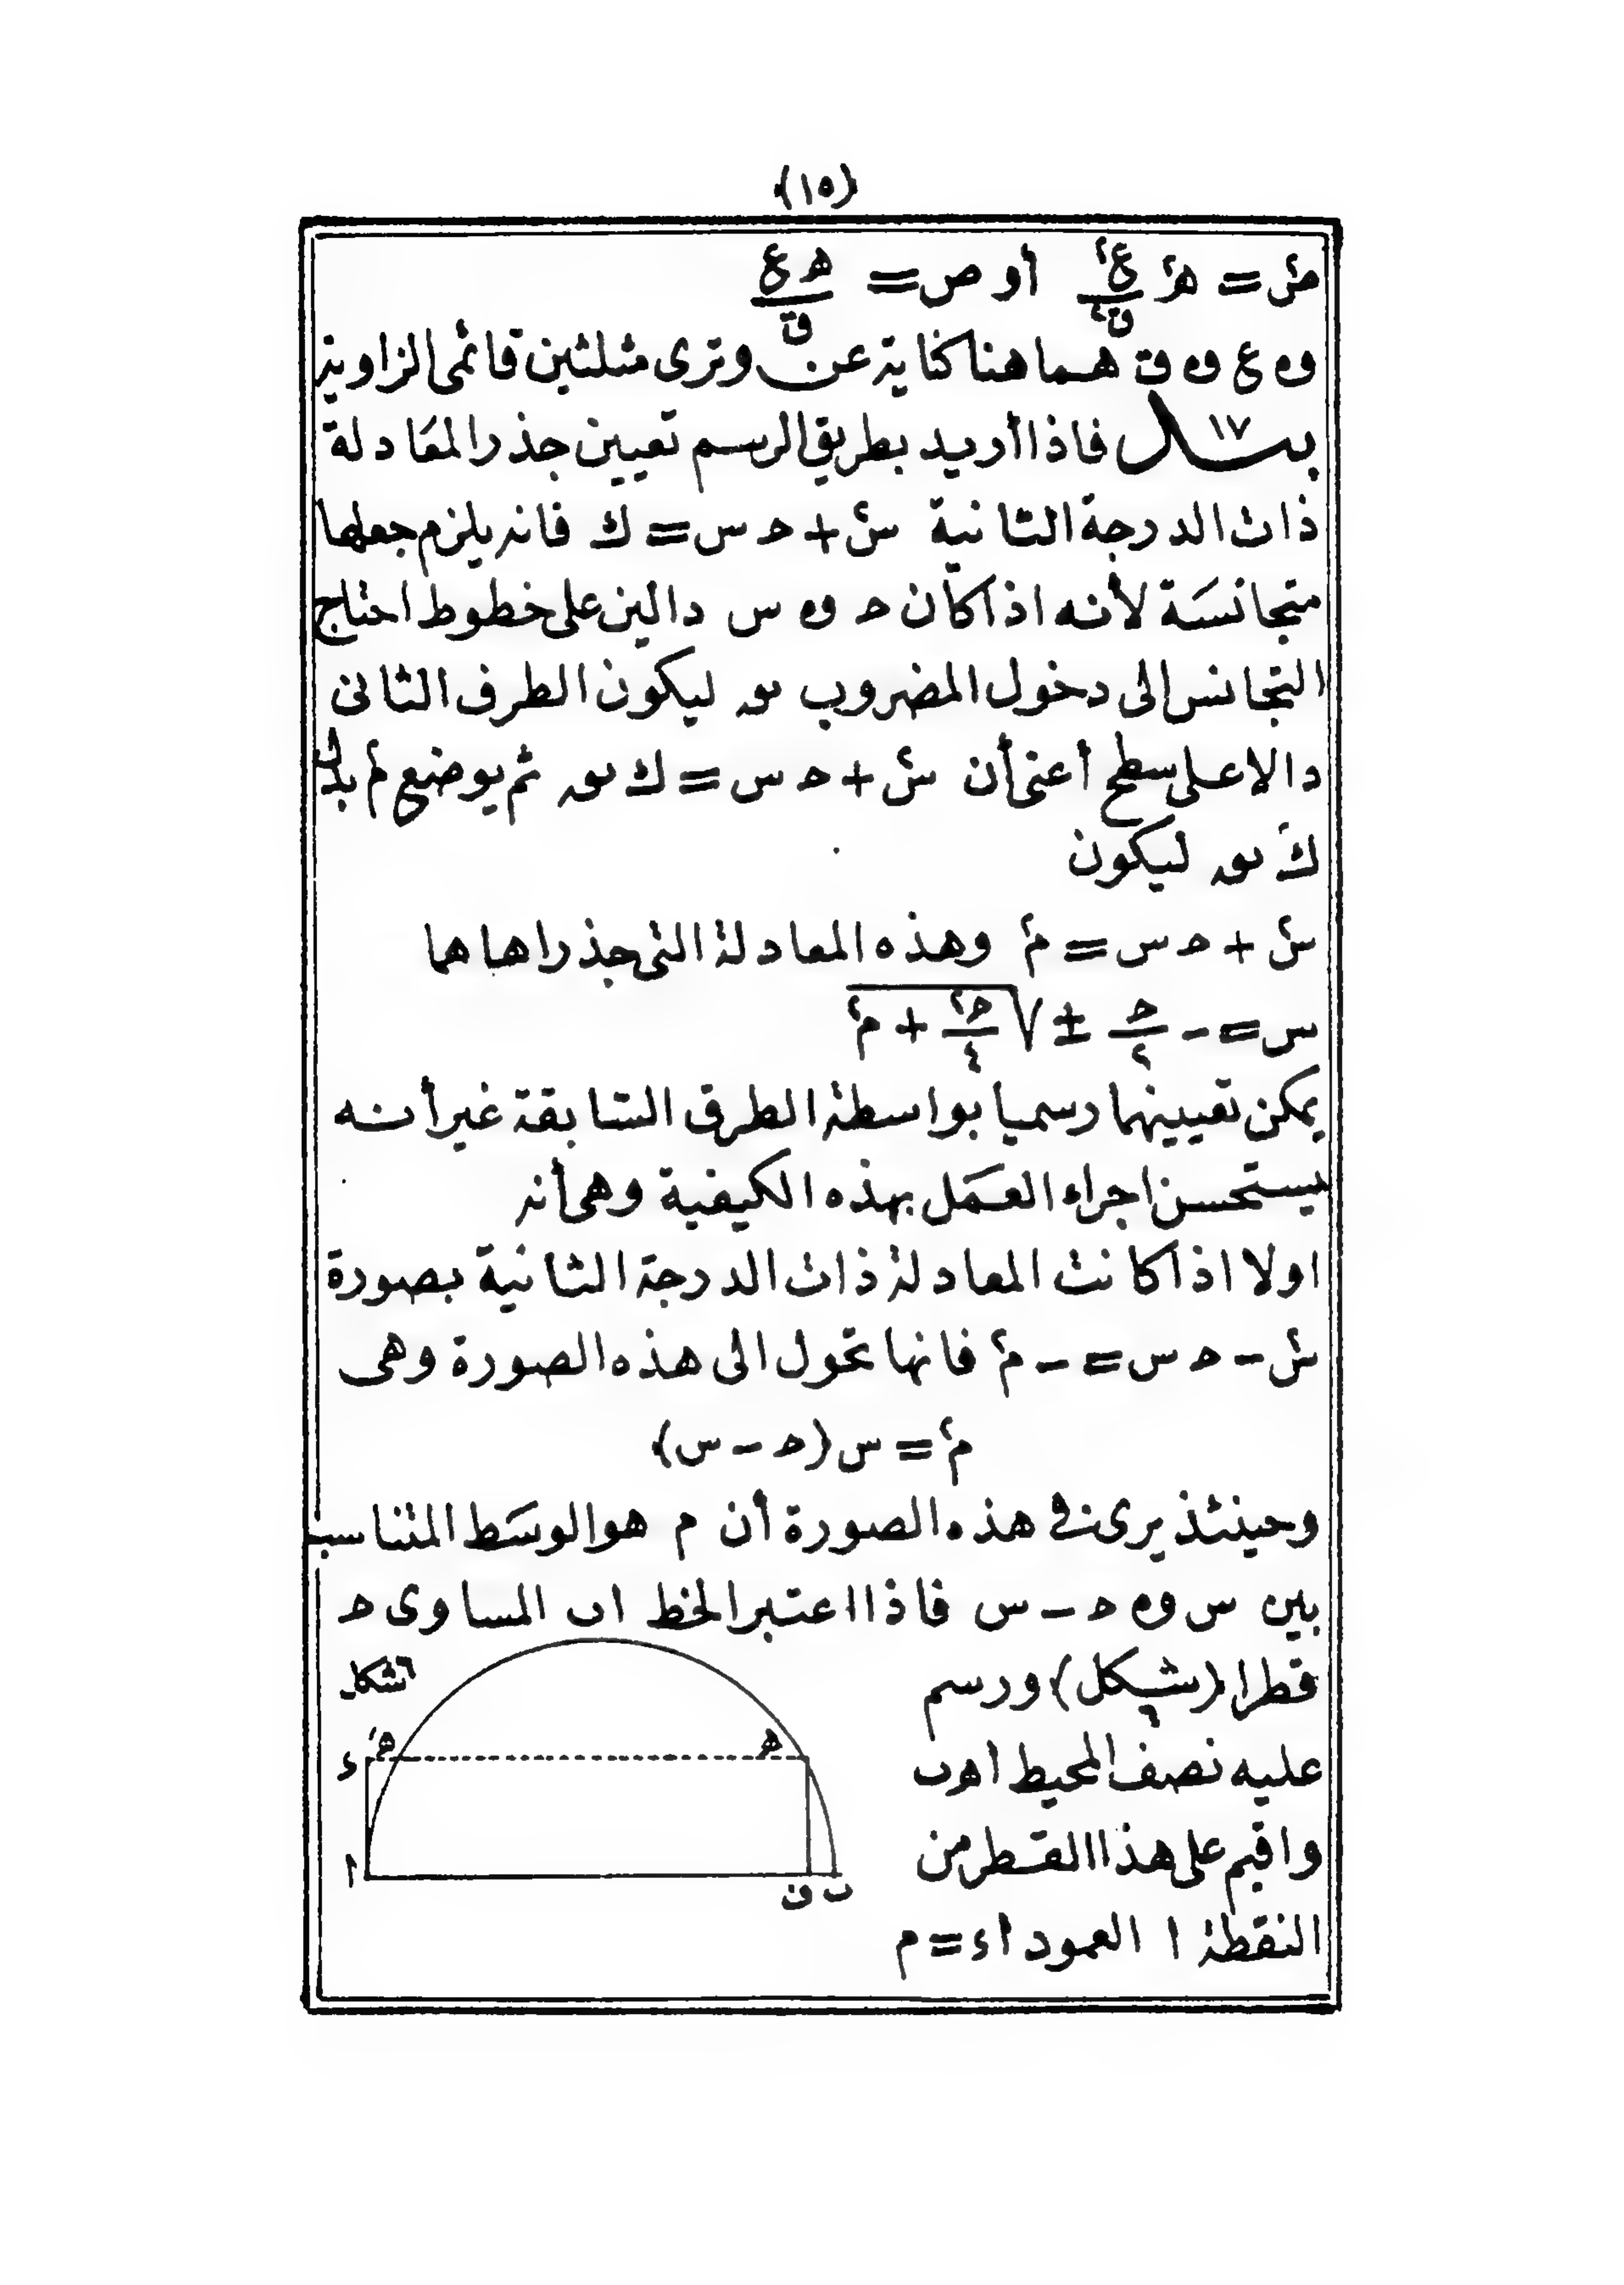 (١٥)
ص٢ = ه٢ ع٢/ق٢ أو ص = ه ع/ق
وه ع وه ق هما هنا كناية عن وترى مثلثين قائمى الزاوية
بند ١٧ فاذا أريد بطريق الرسم تعيين جذر المعادلة
ذات الدرجة الثانية س٢ + ح س = ك فانه يلزم جعلها
متجانسة لأنه اذا كان ح وه س دالين على خطوط احتاج
التجانس الى دخول المضروب ں ليكون الطرف الثانى
دالا على سطح أعنى أن س٢ + ح س = ك ں ثم يوضع م٢ بدل
ك ں ليكون
س٢ + ح س = م٢ وهذه المعادلة التى جذراها هما
س = - ح/٢ ± √(ح٢/٤ + م٢)
يمكن تعيينهما رسميا بواسطة الطرق السابقة غير أنه
يستحسن اجراء العمل بهذه الكيفية وهى أنه
اولا اذا كانت المعادلة ذات الدرجة الثانية بصورة
س٢ - ح س = - م٢ فانها تحول الى هذه الصورة وهى
م٢ = س (ح - س)
وحينئذ يرى فى هذه الصورة أن م هو الوسط المتناسب
بين س وه ح - س فاذا اعتبر الخط اٮ المساوى ح
قطرا (شكل ٦) ورسم
عليه نصف المحيط اهٮ
واقيم على هذا القطر من
النقطة ا العمود اء = م
شكل ٦
ء ه َ ه
ا ف ٮ